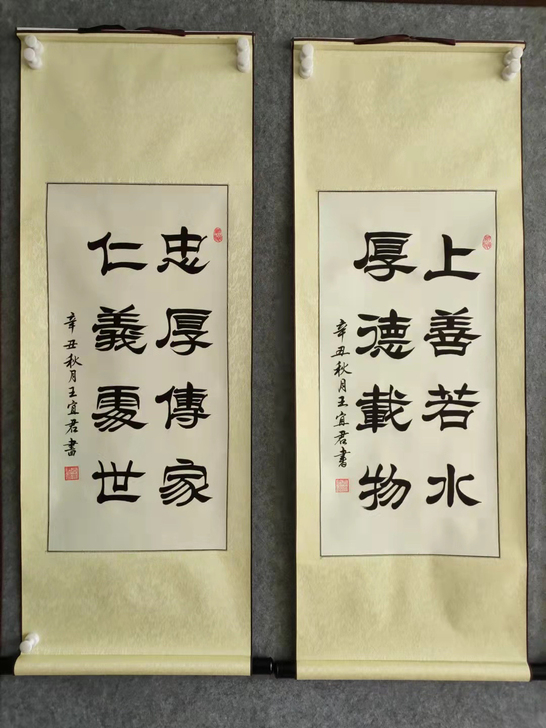 上善若水
厚德載物
辛丑秋月王宜君書
忠厚傳家
仁義處世
辛丑秋月王宜君書